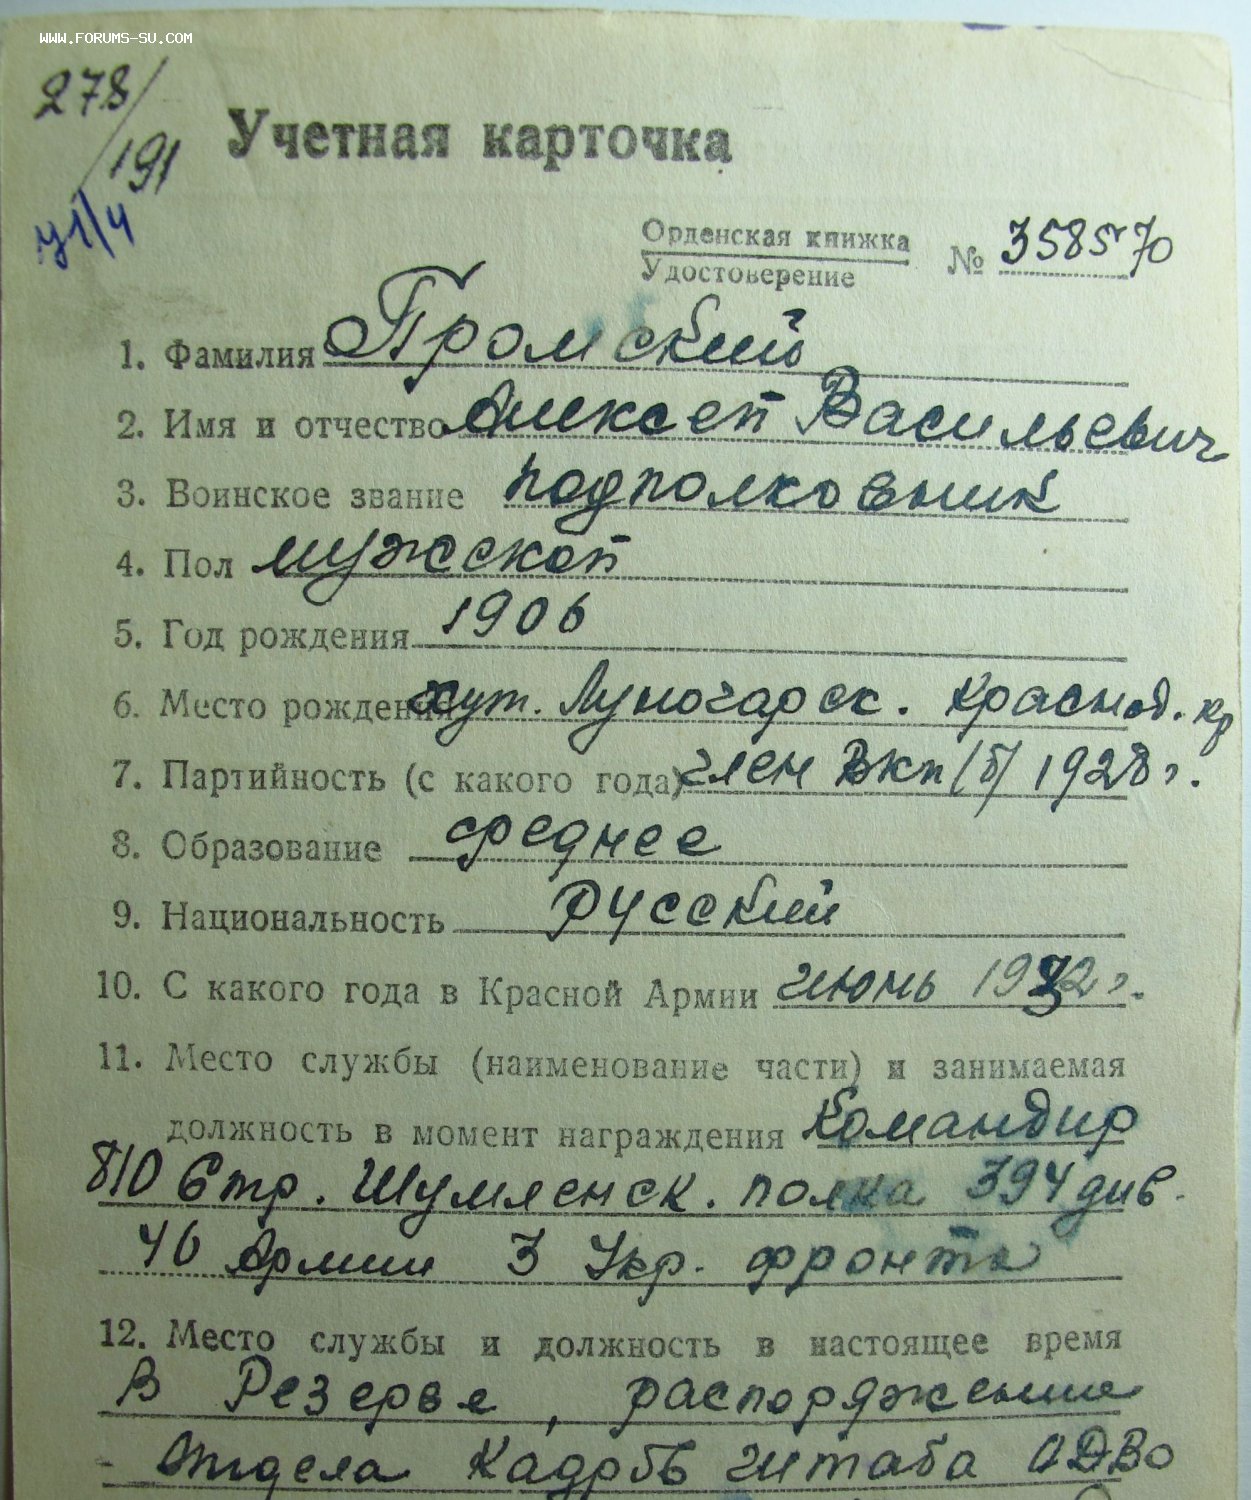 WWW.FORUMS-SU.COM
278/191
у1/4
Учетная карточка
Орденская книжка
Удостоверение
№ 358570
1. Фамилия Промский
2. Имя и отчество Алексей Васильевич
3. Воинское звание подполковник
4. Пол мужской
5. Год рождения 1906
6. Место рождения хут. Луночарск. Краснод. кр
7. Партийность (с какого года) член Вкп/б/ 1928 г.
8. Образование среднее
9. Национальность русский
10. С какого года в Красной Армии июнь 1932 г.
11. Место службы (наименование части) и занимаемая
должность в момент награждения Командир
810 Стр. Шумленск. полка 394 див.
46 Армии 3 Укр. фронта
12. Место службы и должность в настоящее время
В Резерве, распоряжении
Отдела Кадров штаба ОДВО